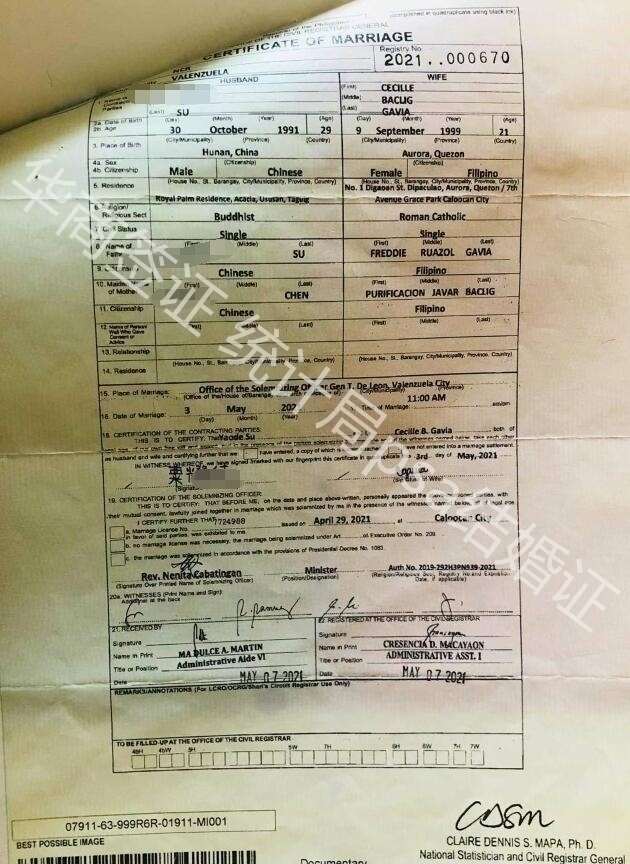 (To be accomplished in quadruplicate using black ink)
OFFICE OF THE CIVIL REGISTRAR GENERAL
CERTIFICATE OF MARRIAGE
Registry No.
2021..000670
VALENZUELA
HUSBAND WIFE
(First) CECILLE
(Middle) BACLIG
(Last) SU (Last) GAVIA
2a. Date of Birth (Day) (Month) (Year) (Age) (Day) (Month) (Year) (Age)
2b. Age 30 October 1991 29 9 September 1999 21
3. Place of Birth (City/Municipality) (Province) (Country) (City/Municipality) (Province) (Country)
Hunan, China Aurora, Quezon
4a. Sex (Citizenship) (Citizenship)
4b. Citizenship Male Chinese Female Filipino
5. Residence (House No., St., Barangay, City/Municipality, Province, Country) (House No., St., Barangay, City/Municipality, Province, Country)
No. 1 Digaoen St. Dipaculao, Aurora, Quezon / 7th
Royal Palm Residence, Acacia, Ususan, Taguig Avenue Grace Park Caloocan City
6. Religion/
Religious Sect Buddhist Roman Catholic
7. Civil Status Single Single
8. Name of (Middle) (Last) (First) (Middle) (Last)
SU FREDDIE RUAZOL GAVIA
9. Chinese Filipino
10. Maiden (Middle) (Last) (First) (Middle) (Last)
of Mother CHEN PURIFICACION JAVAR BACLIG
11. Citizenship Chinese Filipino
12. Name of Person/ (Middle) (Last) (First) (Middle) (Last)
Wali Who Gave
Consent or
Advice
13. Relationship
14. Residence (House No., St., Barangay, City/Municipality, Province, Country) (House No., St., Barangay, City/Municipality, Province, Country)
15. Place of Marriage: Office of the Solemnizing Officer Gen T. De Leon, Valenzuela City
(City/Municipality) (Province)
16. Date of Marriage: 3 May 202 Time of Marriage: 11:00 AM am/pm
(Day) (Month) (Year)
18. CERTIFICATION OF THE CONTRACTING PARTIES:
THIS IS TO CERTIFY: That Yaode Su Cecille B. Gavia both of
as husband and wife and certifying further that we have entered, a copy of which is have not entered into a marriage settlement.
IN WITNESS WHEREOF, we have signed/marked with our fingerprint this certificate in quadruplicate this 3rd day of May, 2021
19. CERTIFICATION OF THE SOLEMNIZING OFFICER:
THIS IS TO CERTIFY: THAT BEFORE ME, on the date and place above-written, personally appeared the above parties, with
their mutual consent, lawfully joined together in marriage which was solemnized by me in the presence of the witnesses
I CERTIFY FURTHER THAT:
a. Marriage License No. 7724988 issued on April 29, 2021 at Caloocan City
in favor of said parties, was exhibited to me.
b. no marriage license was necessary, the marriage being solemnized under Art of Executive Order No. 209.
c. the marriage was solemnized in accordance with the provisions of Presidential Decree No. 1083.
Rev. Nenita Cabatingan Minister Auth No. 2019-292H3PN939-2021
(Signature Over Printed Name of Solemnizing Officer) (Position/Designation) (Religion/Religious Sect, Registry No. and Expiration Date, if applicable)
20a. WITNESSES (Print Name and Sign):
Additional at the Back
21. RECEIVED BY 22. REGISTERED AT THE OFFICE OF THE CIVIL REGISTRAR
Signature Signature
Name in Print MA DULCE A. MARTIN Name in Print CRESENCIA D. MACAYAON
Title or Position Administrative Aide VI Title or Position ADMINISTRATIVE ASST. I
Date MAY 07 2021 Date MAY 07 2021
REMARKS/ANNOTATIONS (For LCRO/OCRG/Shari'a Circuit Registrar Use Only)
TO BE FILLED-UP AT THE OFFICE OF THE CIVIL REGISTRAR
4bH 4bW 5H 5W 6H 6W 7H 7W
07911-63-999R6R-01911-MI001
BEST POSSIBLE IMAGE
Documentary
CLAIRE DENNIS S. MAPA, Ph. D.
National Statistician and Civil Registrar General
华商签证 统计局psa结婚证